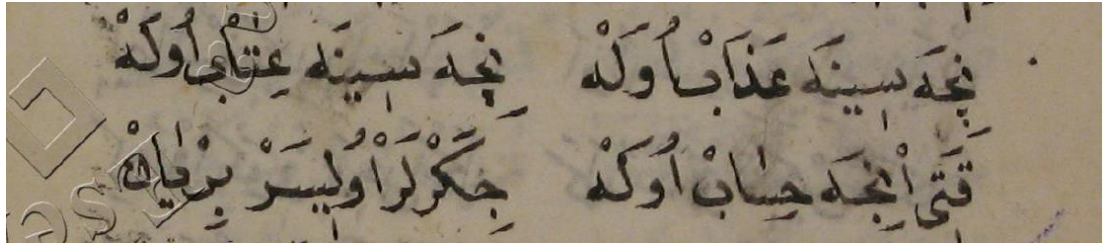 نِجَه سِينَه عَذَابْ اُولَهْ نِجَه سِينَه عِقَابْ اُولَهْ
قَتَى اِنْجَه حِسَابْ اُولَهْ جِكَرْلَرْ اُولِيسَرْ بِرْيَانْ